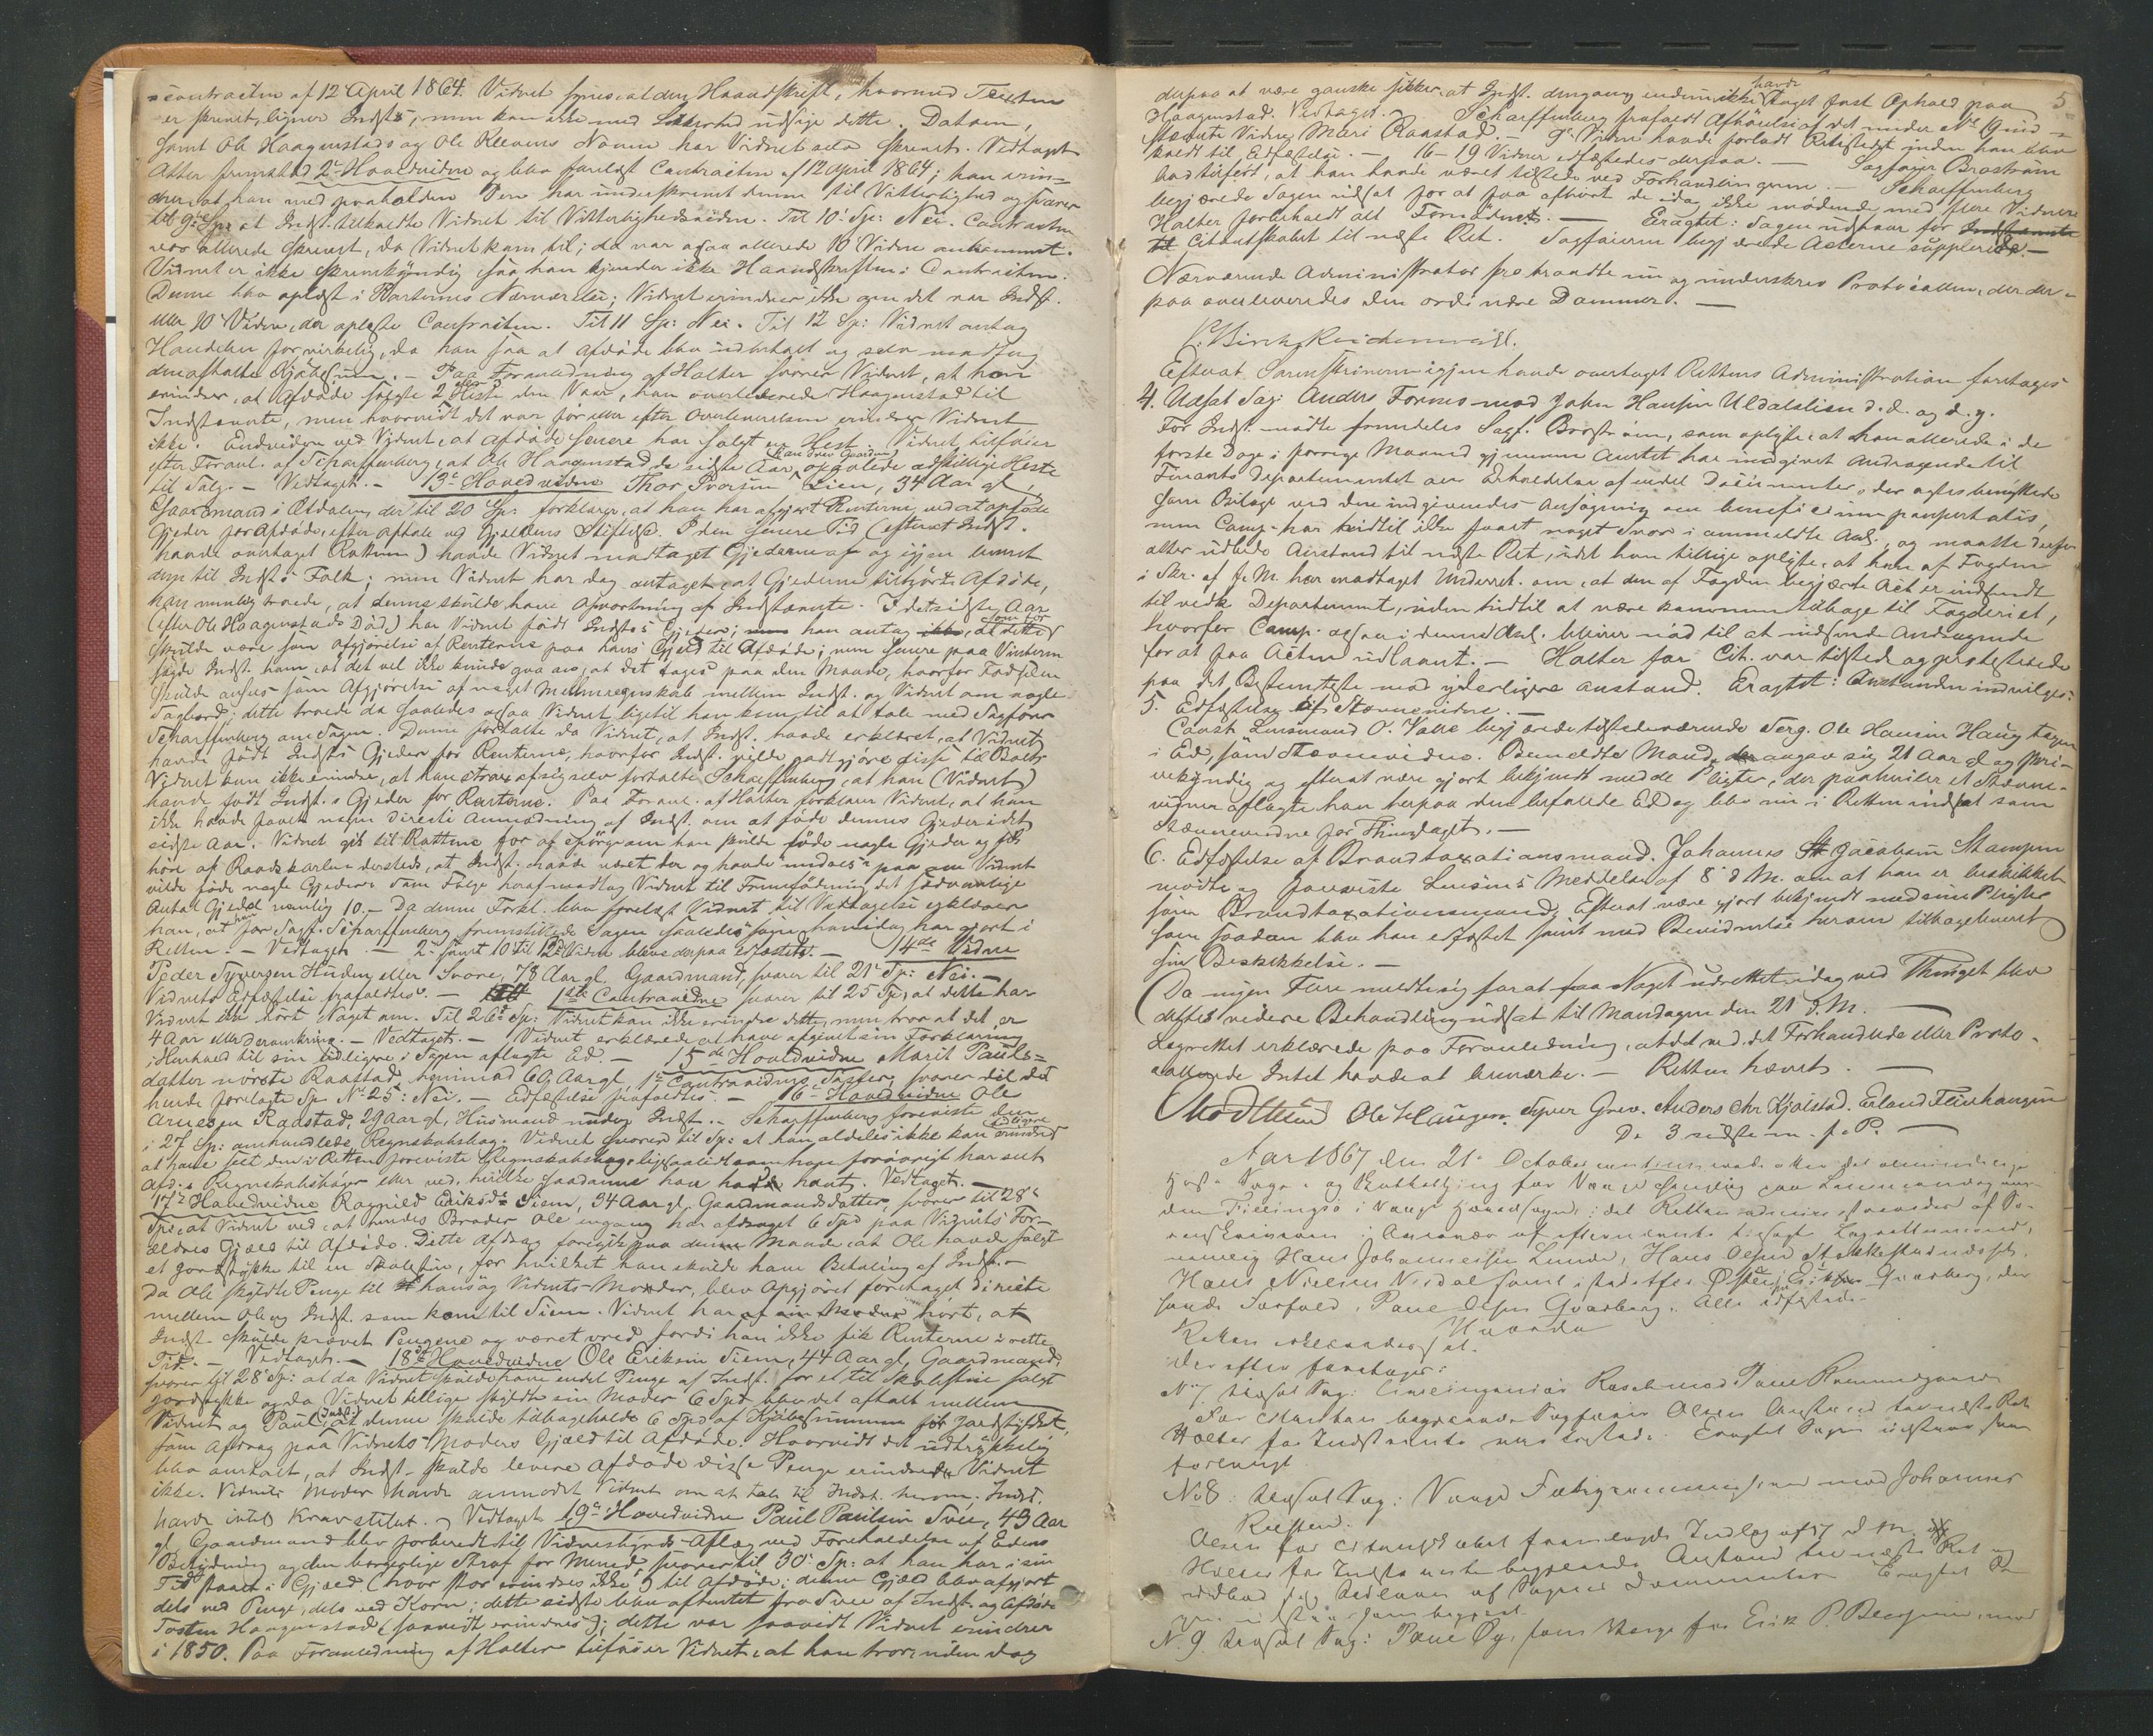 contracten af 12 April 1864. Vidnet synes at den Haandskrift, hvormed Texten
er skrevet, ligner Indsts, men kan ikke med Sikkerhed udsige dette. Datum,
samt Ole Haagenstads og Ole Navne har Vidnet selv skrevet. Vedtaget
Atter fremstod 2det Hovedvidne og blev forelæst Contracten af 12 april 1864; han erin-
drer, at han med paaholden Pen har underskrevet denne til Vitterlighed og svarer
til 9de Sp: at Indst. tilkaldte Vidnet til Vitterlighedsvidne. Til 10 Sp: Nei. Contracten
var allerede skrevet, da Vidnet kom til; da var ogsaa allerede 10 Vidne ankommet.
Vidnet er ikke skrivekyndig saa han kjender ikke Haandskriften i Contracten.
Denne blev oplæst i Parternes Nærværelse; Vidnet erindrer ikke om det var Indst.
eller 10 Vidne, der oplæste Contracten. Til 11 Sp: Nei. Til 12 Sp: Vidnet antog
Handelen for virkelig, da han saa at Afdøde blev udbetalt og selv modtog
den aftalte Kjøbesum. - Paa Foranledning af Halter svarer Vidnet, at han
erindrer, at Afdøde solgte 2 Heste den Vaar, han overleverede Haagenstad til
Indstævnte, men hvorvidt det var før eller efter Overleverelsen erindrer Vidnet
ikke. Endvidere ved Vidnet, at Afdøde senere har solgt en Hest. Vidnet tilføier
efter Foranl. af Scharffenberg, at Ole Haagenstad de sidste Aar, han drev Gaarden, opfødte adskillige Heste
til Salg. - Vedtaget. - 13de Hovedvidne Thor Lien, 34 Aar gl.,
Gaardmand i der til 20 Sp: forklarer, at han har afgjort Renterne ved at opføde
Gjeder for Afdøde, efter Aftale ved Gjældens Stiftelse. I den senere Tid (efterat Indst.
havde overtaget ) havde Vidnet modtaget Gjederne af og igjen leveret
dem til Indsts Folk; men Vidnet har dog antaget, at Gjederne tilhørte Afdøde,
han nemlig troede, at denne skulde have Opvartning af Indstævnte. I det sidste Aar
(efter Ole Haagenstads Død) har Vidnet født Indsts Gjeder; han antog at dette
skulde være som Afgjørelse af Renterne paa hans Gjæld til Afdøde; men senere paa Vinteren
sagde Indst. ham, at det vel ikke kunde gaa an, at det toges paa den Maade, hvorfor Fødselen
skulde ansees som Afgjørelse af noget Mellemregnskab mellem Indst. og Vidnet om nogle
Sagbord; dette troede da saaledes ogsaa Vidnet ligetil han kom til at tale med Sagfører
Scharffenberg om Sagen. Denne fortalte da Vidnet, at Indst. havde erklæret, at Vidnet
havde født Indsts Gjeder for Renterne, hvorfor Indst. vilde godtgjøre disse til Boet.
Vidnet kan ikke erindre, at han strax af sig selv fortalte Scharffenberg, at han (Vidnet)
havde født Indst.s Gjeder for Renterne. Paa Foranl. af Halter forklarer Vidnet, at han
ikke havde faaet nogen directe Anmodning af Indst. om at føde dennes Gjeder i det
sidste Aar. Vidnet gik til for at spørge om han skulde føde nogle Gjeder og fik
høre af dersteds, at Indst. havde været der og havde paa om Vidnet
vilde føde nogle Gjeder. Som Følge heraf modtog Vidnet til Fremfødning det sædvanlige
Antal Gjeder nemlig 10. - Da denne Forkl. blev forelæst Vidnet til Vedtagelse erklærer
han, at han for Sagf. Scharffenberg fremstillede Sagen saaledes som han idag har gjort i
Retten. - Vedtaget. - 2det samt 10 til 13de Vidne blev derpaa edfæstet. - 14de Vidne
Peder Syversen eller Svare, 78 Aar gl, Gaardmand, svarer til 21de Sp: Nei. -
Vidnets Edfæstelse frafaldtes. - 1ste Contravidne svarer til 25 Sp, at dette har
Vidnet ikke hørt Noget om. Til 26de Sp: Vidnet kan ikke erindre dette, men tror at det er
4 Aar eller deromkring. - Vedtaget. - Vidnet erklærede at have afgivet sin Forklaring
i Henhold til sin tidligere i Sagen aflagte Ed. - 15de Hovedvidne Marit Pauls-
datter nørste Raastad, henimod 60 Aar gl, 1ste Contravidnes Søster, svarer til det
hende forelagte Sp No 25: Nei. - Edfæstelse frafaldtes. - 16de Hovedvidne Ole
Arnesen Raastad, 29 Aar gl, Husmand under Indst. - Scharffenberg foreviste den
i 27 Sp: omhandlede Regnskabsbog. Vidnet svarer til Sp: at han aldeles ikke kan erindre
at have seet den i Retten foreviste Regnskabsbog ligesaalidt som han forøvrigt har seet
Afd.s Regnskabsbøger eller ved, hvilke saadanne han havde havt. Vedtaget. -
17de Hovedvidne Ragnild Eriksdr Siem, 34 Aar gl, Gaardmandsdatter, svarer til 28de
Sp: at Vidnet ved, at hendes Broder Ole engang har afdraget 6 Spd paa Vidnets For-
ældres Gjæld til Afdøde. Dette Afdrag foregik paa den Maade, at Ole havde solgt
et Jordstykke til en Skolestue, for hvilket han skulde have Betaling af Indst. -
Da Ole skyldte Penge til hans og Vidnets Moder, blev Opgjøret foretaget directe
mellem Ole og Indst. som kom til Siem. Vidnet har af sin Moder hørt, at
Indst. skulde prøvet Pengene og været vred fordi han ikke fik Renterne i rette
Tid. - Vedtaget. - 18de Hovedvidne Ole Eriksen Siem, 44 Aar gl, Gaardmand,
svarer til 28 Sp: at da Vidnet skulde have endel Penge af Indst. for et til Skolestue solgt
Jordstykke og da Vidnet tillige skyldte sin Moder 6 Spd blev det aftalt mellem
Vidnet og Paul (Indst.) at denne skulde tilbageholde 6 Spd af Kjøbesummen for Jordstykket,
som Afdrag paa Vidnets Moders Gjæld til Afdøde. Hvorvidt det udtrykkelig
blev omtalt, at Indst. skulde levere Afdøde disse Penge erindrer Vidnet
ikke. Vidnets Moder havde anmodet Vidnet om at tale til Indst. herom. Indst.
havde intet Krav stillet. - Vedtaget. 19de Hovedvidne Paul Paulsen Sve, 43 Aar
gl, Gaardmand blev forberedt til Vidnesbyrds Aflæg ved Foreholdelse af Edens
Betydning og den borgerlige Straf for Mened svarer til 30 Sp: at han har i sin
Tid staaet i Gjæld (hvor stor erindres ikke) til Afdøde; denne Gjæld blev afgjort
dels ved Penge, dels ved Korn; dette sidste blev afhentet fra Sve af Indst. og Afdøde
Tosten Haagenstad (saavidt erindres); dette var saavidt Vidnet erindrer
i 1850. Paa Foranledning af Halter tilføier Vidnet, at han tror, uden dog
5
derpaa at være ganske sikker, at Indst. dengang endnu ikke havde taget fast Ophold paa
Haagenstad. Vedtaget. - Scharffenberg frafaldt Afhørelse af det under No
stævnte Vidne Mari Raastad. - 9de Vidne havde forladt Retstedet inden han blev
kaldt til Edfæstelse. - 16 - 19 Vidner edfæstedes derpaa. - Sagfører Broström
bad tilført, at han havde været tilstede ved Forhandlingerne. - Scharffenberg
begjærede Sagen udsat for at faa afhørt de idag ikke mødende med flere Vidner
Halter forbeholdt alt Fornødent. - Eragtet: Sagen udstaar for
Citantskabet til næste Ret. Sagførerne begjærede Acterne supplerede. -
Nærværende Administrator fratraadte nu og underskrev Protocollen, der der-
paa overleveredes den ordinære Dommer. -
C. Birch Reichenwald.
Efterat Sorenskriveren igjen havde overtaget Rettens Administration foretages
4. Udsat Sag: Anders Formo mod John Hansen Uldalslien d.æ. og d.y.
For Indst. mødte fremdeles Sagf. Broström, som oplyste at han allerede i de
første Dage i forrige Maaned gjennem Amtet har indgivet Andragende til
Finants Departementet om Erholdelse af endel Documenter, der agtes benyttede
som Bilage ved den indgivendes Ansøgning om beneficium paupertatis,
men Comp. har hidtil ikke faaet noget Svar i anmeldte Anl., og maatte derfor
atter udbede Anstand til næste Ret, idet han tillige oplyste, at han af Fogden
i Skr. af f.M. har modtaget Underret. om, at den af Fogden begjærte Act er indsendt
til vedk. Departement, uden hidtil at være kommen tilbage til Fogderiet,
hvorfor Comp. ogsaa i denne Anl. bliver nød til at indsende Andragende
for at faa Acten udlaant. - Halter for Cit. var tilstede og protesterede
paa det Bestemteste mod yderligere Anstand. Eragtet: Anstanden indvilges.
5. Edfæstelse af Stævnevidne. -
Const. Lensmand O. begjærede tilstedeværende Serg. Ole Hansen Haugstegen
i Ed, som Stævnevidne. Bemeldte Mand, angav sig 21 Aar gl og skri-
vekyndig og efterat være gjort bekjendt med de Pligter, der paahviler et Stævne-
vidne aflagte han herpaa den befalede Ed og blev nu i Retten indsat som
Stævnevidne for Thinglaget. -
6. Edfæstelse af Brandtaxationsmand. Johannes Jacobsen Stampen
mødte og foreviste Lensms Meddelelse af 8 d.M. om at han er beskikket
som Brandtaxationsmand. Efterat være gjort bekjendt med sine Pligter
som saadan blev han edfæstet samt med Bevidnelse herom tilbageleveret
sin Beskikkelse. -
Da ingen Flere meldte sig for at faa Noget udrettet idag ved Thinget blev
dettes videre Behandling udsat til Mandagen den 21 d.M. -
Lagrettet erklærede paa Foranledning, at det ved det Forhandlede eller Proto-
collerede Intet havde at bemærke. - Retten hævet. -
Ole Haugen. Syver Grev. Anders Chr Kjolstad. Erland
De 3 sidste m. f. P. -
Aar 1867 den 21 October continuerede atter det almindelige
Høst- Sage- og Skattething for Vaage Thinglag paa Lensmandsgaar-
den i Vaage Hovedsogn; det Retten administreredes af So-
renskriveren i Overvær af efternævnte tilsagte Lagrettesmænd,
nemlig Hans Johannessen Lunde, Hans Olsen
Hans Nielsen Nordal samt istedetfor Østen Eriksen Qvarberg, der
havde Forfald, Paul Olsen Qvarberg. Alle edfæstede.
Hvorda
Retten
Derefter foretoges:
No 7. Udsat Sag: mod Paul
For Citanten begjærede Sagfører Olsen Anstand til næste Ret
Halter for Indstævnte var tilstede. Eragtet Sagen udstaar som
forlangt
No 8. Udsat Sag: Vaage Fattigcommission mod Johannes
Olsen for Citantskabet fremlagde Indlæg af 17 d.M.
Halter for Indstævnte begjærede Anstand til næste Ret og
udbad sig Udlaan af Sagens Documenter Eragtet Sa-
gen udstaar som begjært.
No 9. Udsat Sag: Paul Øy, som Værge for Erik P. mod